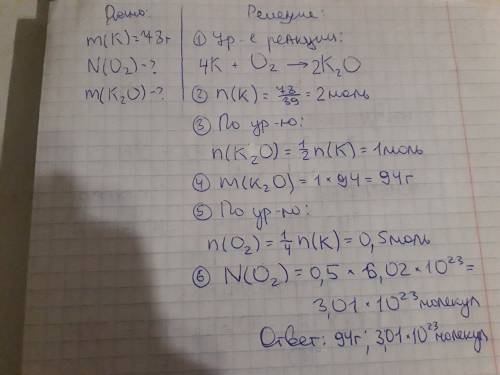 Дано:
m(K)=78г
N(O₂)-?
m(K₂O)-?
Решение:
① Ур-е реакции:
4K + O₂ → 2K₂O
② n(K) = 78/39 = 2моль
③ По ур-ю:
n(K₂O) = 1/2 n(K) = 1моль
④ m(K₂O) = 1 × 94 = 94г
⑤ По ур-ю:
n(O₂) = 1/4 n(K) = 0,5моль
⑥ N(O₂) = 0,5 × 6,02 × 10²³ =
3,01 × 10²³ молекул
Ответ: 94г; 3,01 × 10²³ молекул